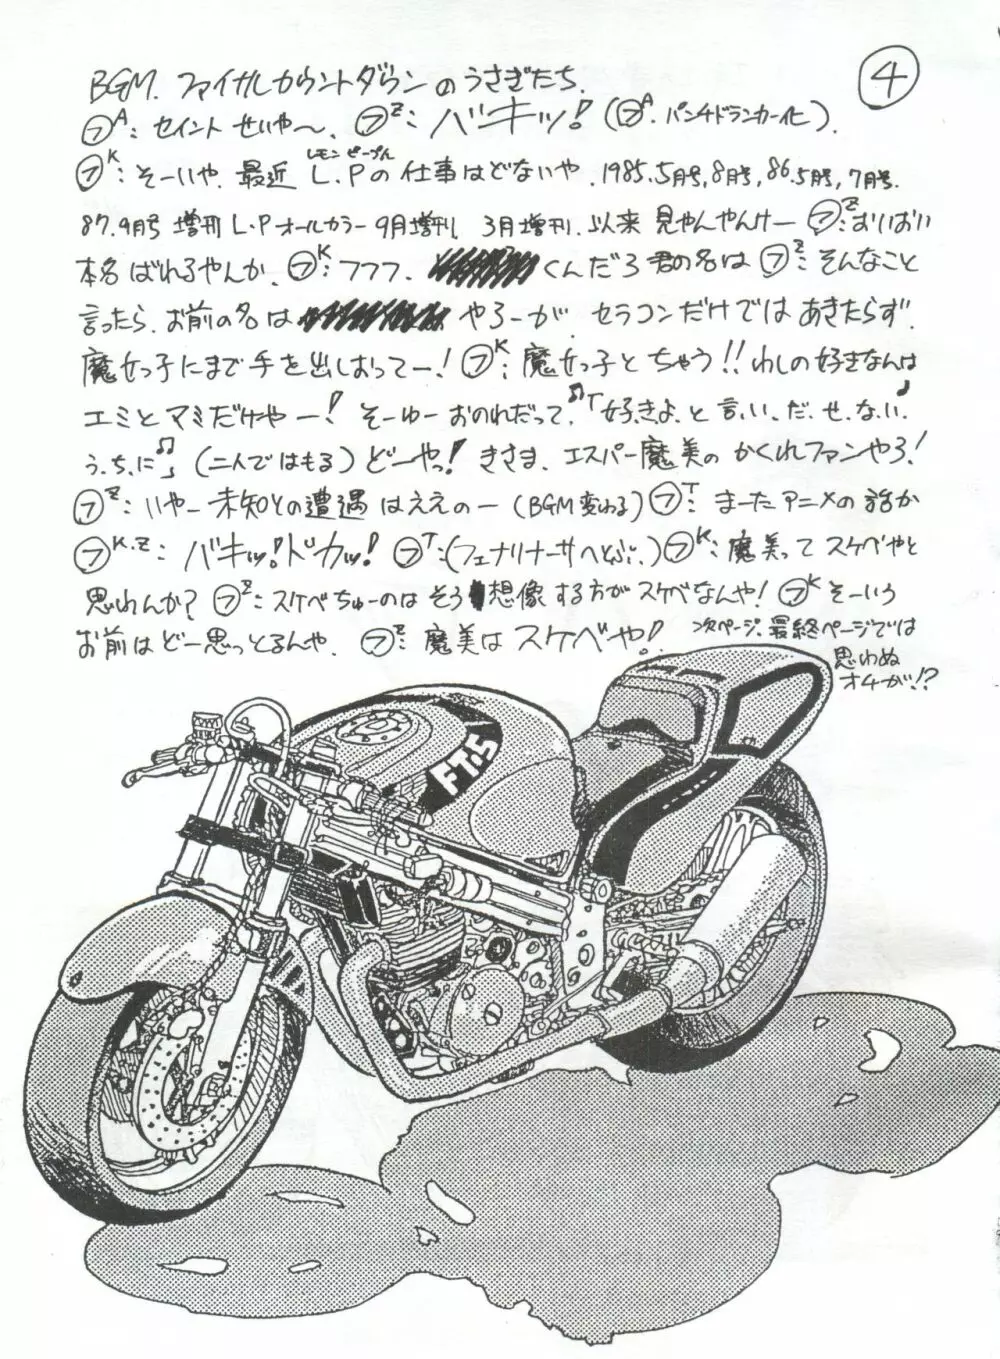 ④
BGM. ファイナルカウントダウンのうさぎたち.
㋫A: セイント せいや〜. ㋫Z: バキッ! (㋫A. パンチドランカー化).
㋫K: そーいや. 最近 L.Pの 仕事はどないや. 1985.5月号, 8月号, 86.5月号, 7月号.
レモン ピープル
87.9月号 増刊 L.P オールカラー 9月増刊 3月増刊. 以来 見やんやんけー ㋫Z: おいおい
本名 ばれるやんか. ㋫K: フフフ. くんだろ 君の名は ㋫Z: そんなこと
言ったら. お前の名は やろーが. セラコンだけでは あきたらず.
魔女っ子にまで手を出しおってー! ㋫K: 魔女っ子と ちゃう!! わしの好きなんは
エミとマミだけやー! そーゆー おのれだって. ♫「好.き.よ.と 言.い.だ.せ.な.い.♪
う.ち.に♫」 (二人ではもる) どーやっ! きさま. エスパー魔美の かくれファンやろ!
㋫Z: いやー 未知との遭遇 はええのー (BGM変わる) ㋫T: まーた アニメの話か
㋫K.Z: バキッ! ドカッ! ㋫T: (フェナリナーサへとぶ.) ㋫K: 魔美って スケベやと
思わんか? ㋫Z: スケベちゅーのは そう 想像する方が スケベなんや! ㋫K そーいう
お前は どー思っとるんや. ㋫Z: 魔美は スケベや! 次ページ. 最終ページでは
思わぬ
オチが!?
FT.5